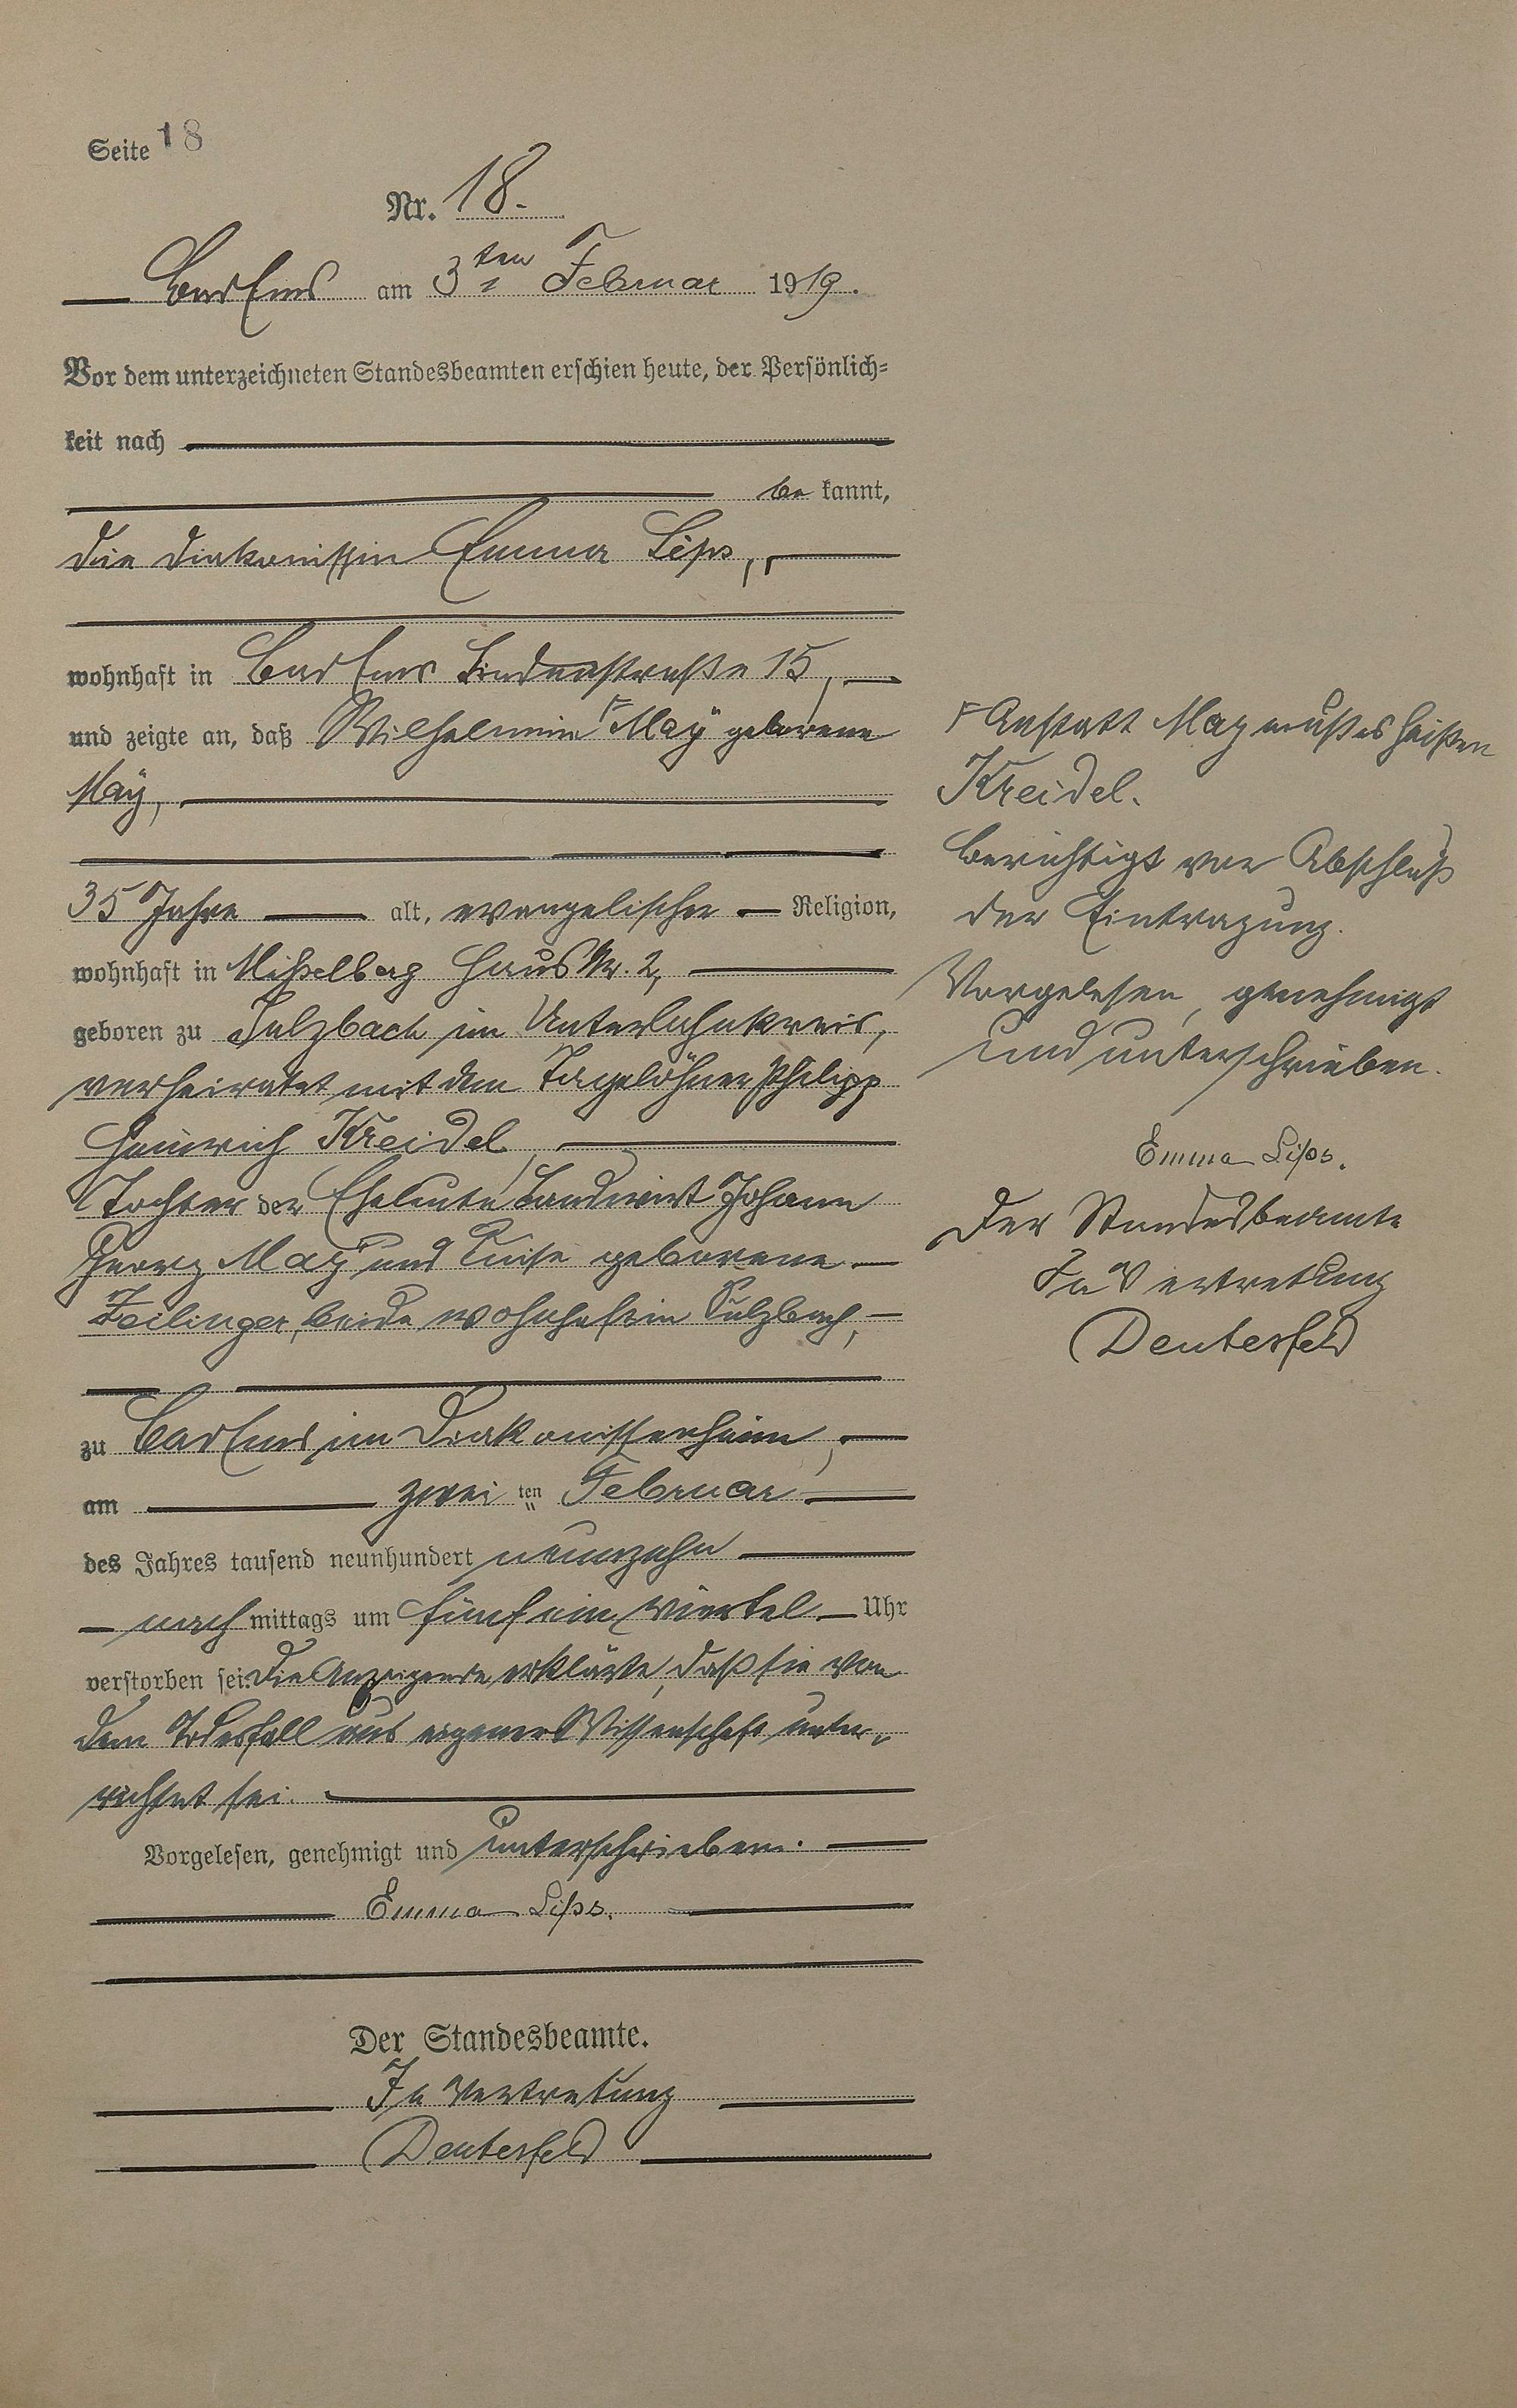 Seite 18
Nr. 18.
Bad Ems am 3ten Februar 1919.
Vor dem unterzeichneten Standesbeamten erschien heute, der Persönlich=
keit nach
be kannt,
die Diakonissin Emma Lips,
wohnhaft in Bad Ems Lindenstraße 15,
und zeigte an, daß Wilhelmine ꟻ Maÿ geborene
Maÿ,
35 Jahre alt, evangelischer Religion,
wohnhaft in Misselberg Haus Nr. 2,
geboren zu Sulzbach im Unterlahnkreis,
verheiratet mit dem Tagelöhner Philipp
Heinrich Kreidel,
Tochter der Eheleute Landwirt Johann
Georg Maÿ und Luise geborene
Zeilinger, beide wohnhaft in Sulzbach,
zu Bad Ems im Diakonissenheim,
am zwei ten Februar
des Jahres tausend neunhundert neunzehn
nach mittags um fünf ein viertel Uhr
verstorben sei. Die Anzeigende erklärte, daß sie von
dem Todesfall aus eigener Wissenschaft unter-
richtet sei.
Vorgelesen, genehmigt und unterschrieben.
Emma Lips.
Der Standesbeamte.
In Vertretung
Deutesfeld
ꟻ Anstatt May muß es heißen
Kreidel.
Berichtigt vor Abschluß
der Eintragung.
Vorgelesen, genehmigt
und unterschrieben.
Emma Lips.
Der Standesbeamte
In Vertretung
Deutesfeld